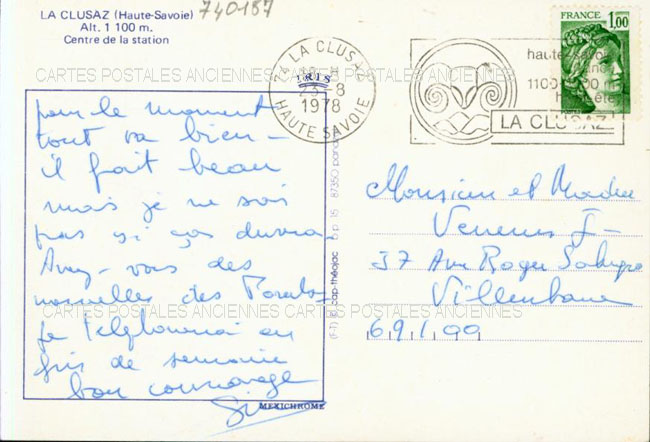 LA CLUSAZ (Haute-Savoie)
Alt. 1 100 m.
Centre de la station
740187
74 LA CLUSAZ
23-8
1978
HAUTE SAVOIE
haute savoie
LA CLUSAZ
FRANCE 1,00
CARTES POSTALES ANCIENNES CARTES POSTALES ANCIENNES
IRIS
pour le moment
tout va bien -
il fait beau
mais je ne sais
pas si ça durera
Avez-vous des
nouvelles des
Je téléphonerai en
fin de semaine
bon courage
MEXICHROME
cap-théojac 87350
Monsieur et Madame
37 Ave Roger Salengro
Villeurbanne
69100
CARTES POSTALES ANCIENNES CARTES POSTALES ANCIENNES